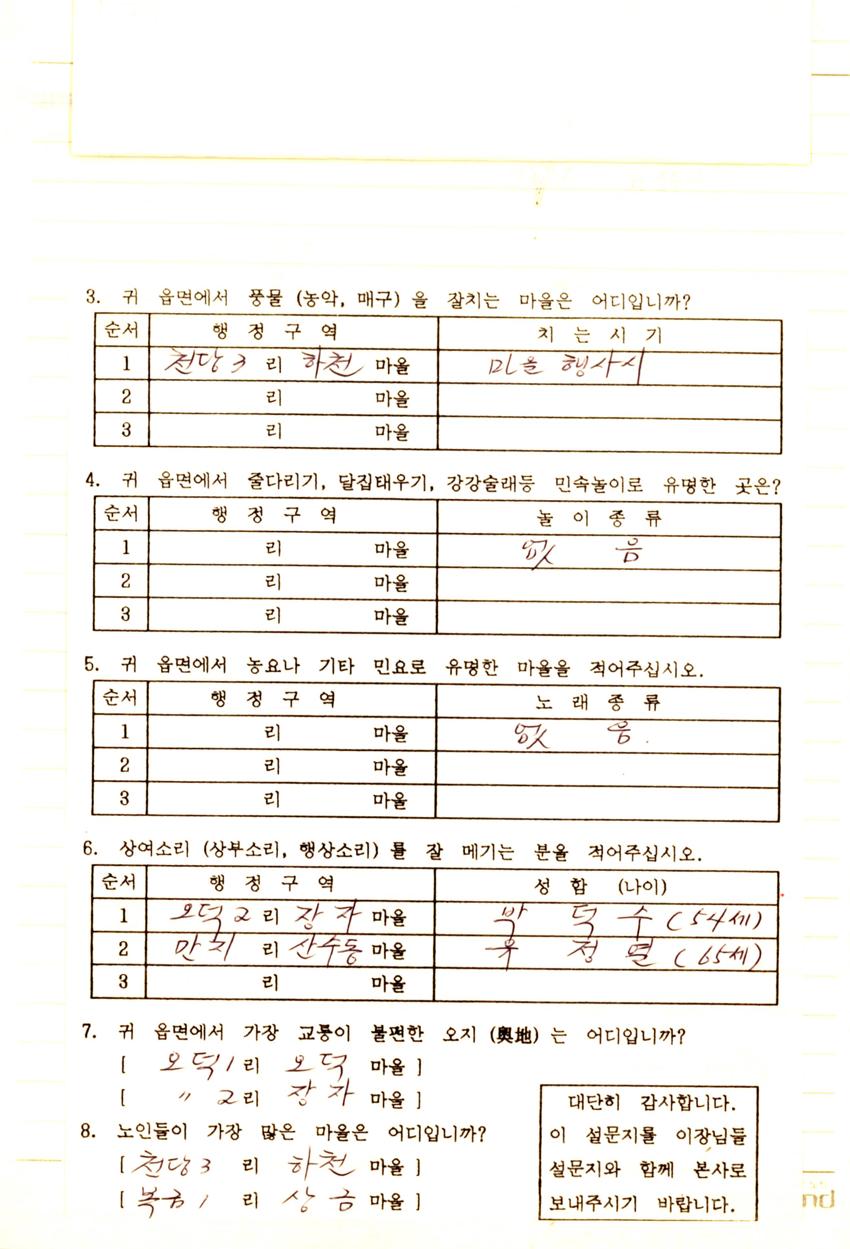 3. 귀 읍면에서 풍물 (농악, 매구) 을 잘치는 마을은 어디입니까?
순서 행 정 구 역 치 는 시 기
1 천당 3 리 하천 마을 마을 행사시
2 리 마을
3 리 마을
4. 귀 읍면에서 줄다리기, 달집태우기, 강강술래등 민속놀이로 유명한 곳은?
순서 행 정 구 역 놀 이 종 류
1 리 마을 없 음
2 리 마을
3 리 마을
5. 귀 읍면에서 농요나 기타 민요로 유명한 마을을 적어주십시오.
순서 행 정 구 역 노 래 종 류
1 리 마을 없 음.
2 리 마을
3 리 마을
6. 상여소리 (상부소리, 행상소리) 를 잘 메기는 분을 적어주십시오.
순서 행 정 구 역 성 함 (나이)
1 오덕 2 리 장자 마을 박 덕 수 (54세)
2 만지 리 산수동 마을 정 열 (65세)
3 리 마을
7. 귀 읍면에서 가장 교통이 불편한 오지 (奧地) 는 어디입니까?
[ 오덕 1 리 오덕 마을 ]
[ 〃 2 리 장자 마을 ]
8. 노인들이 가장 많은 마을은 어디입니까?
[ 천당 3 리 하천 마을 ]
[ 복금 1 리 상금 마을 ]
대단히 감사합니다.
이 설문지를 이장님들
설문지와 함께 본사로
보내주시기 바랍니다.